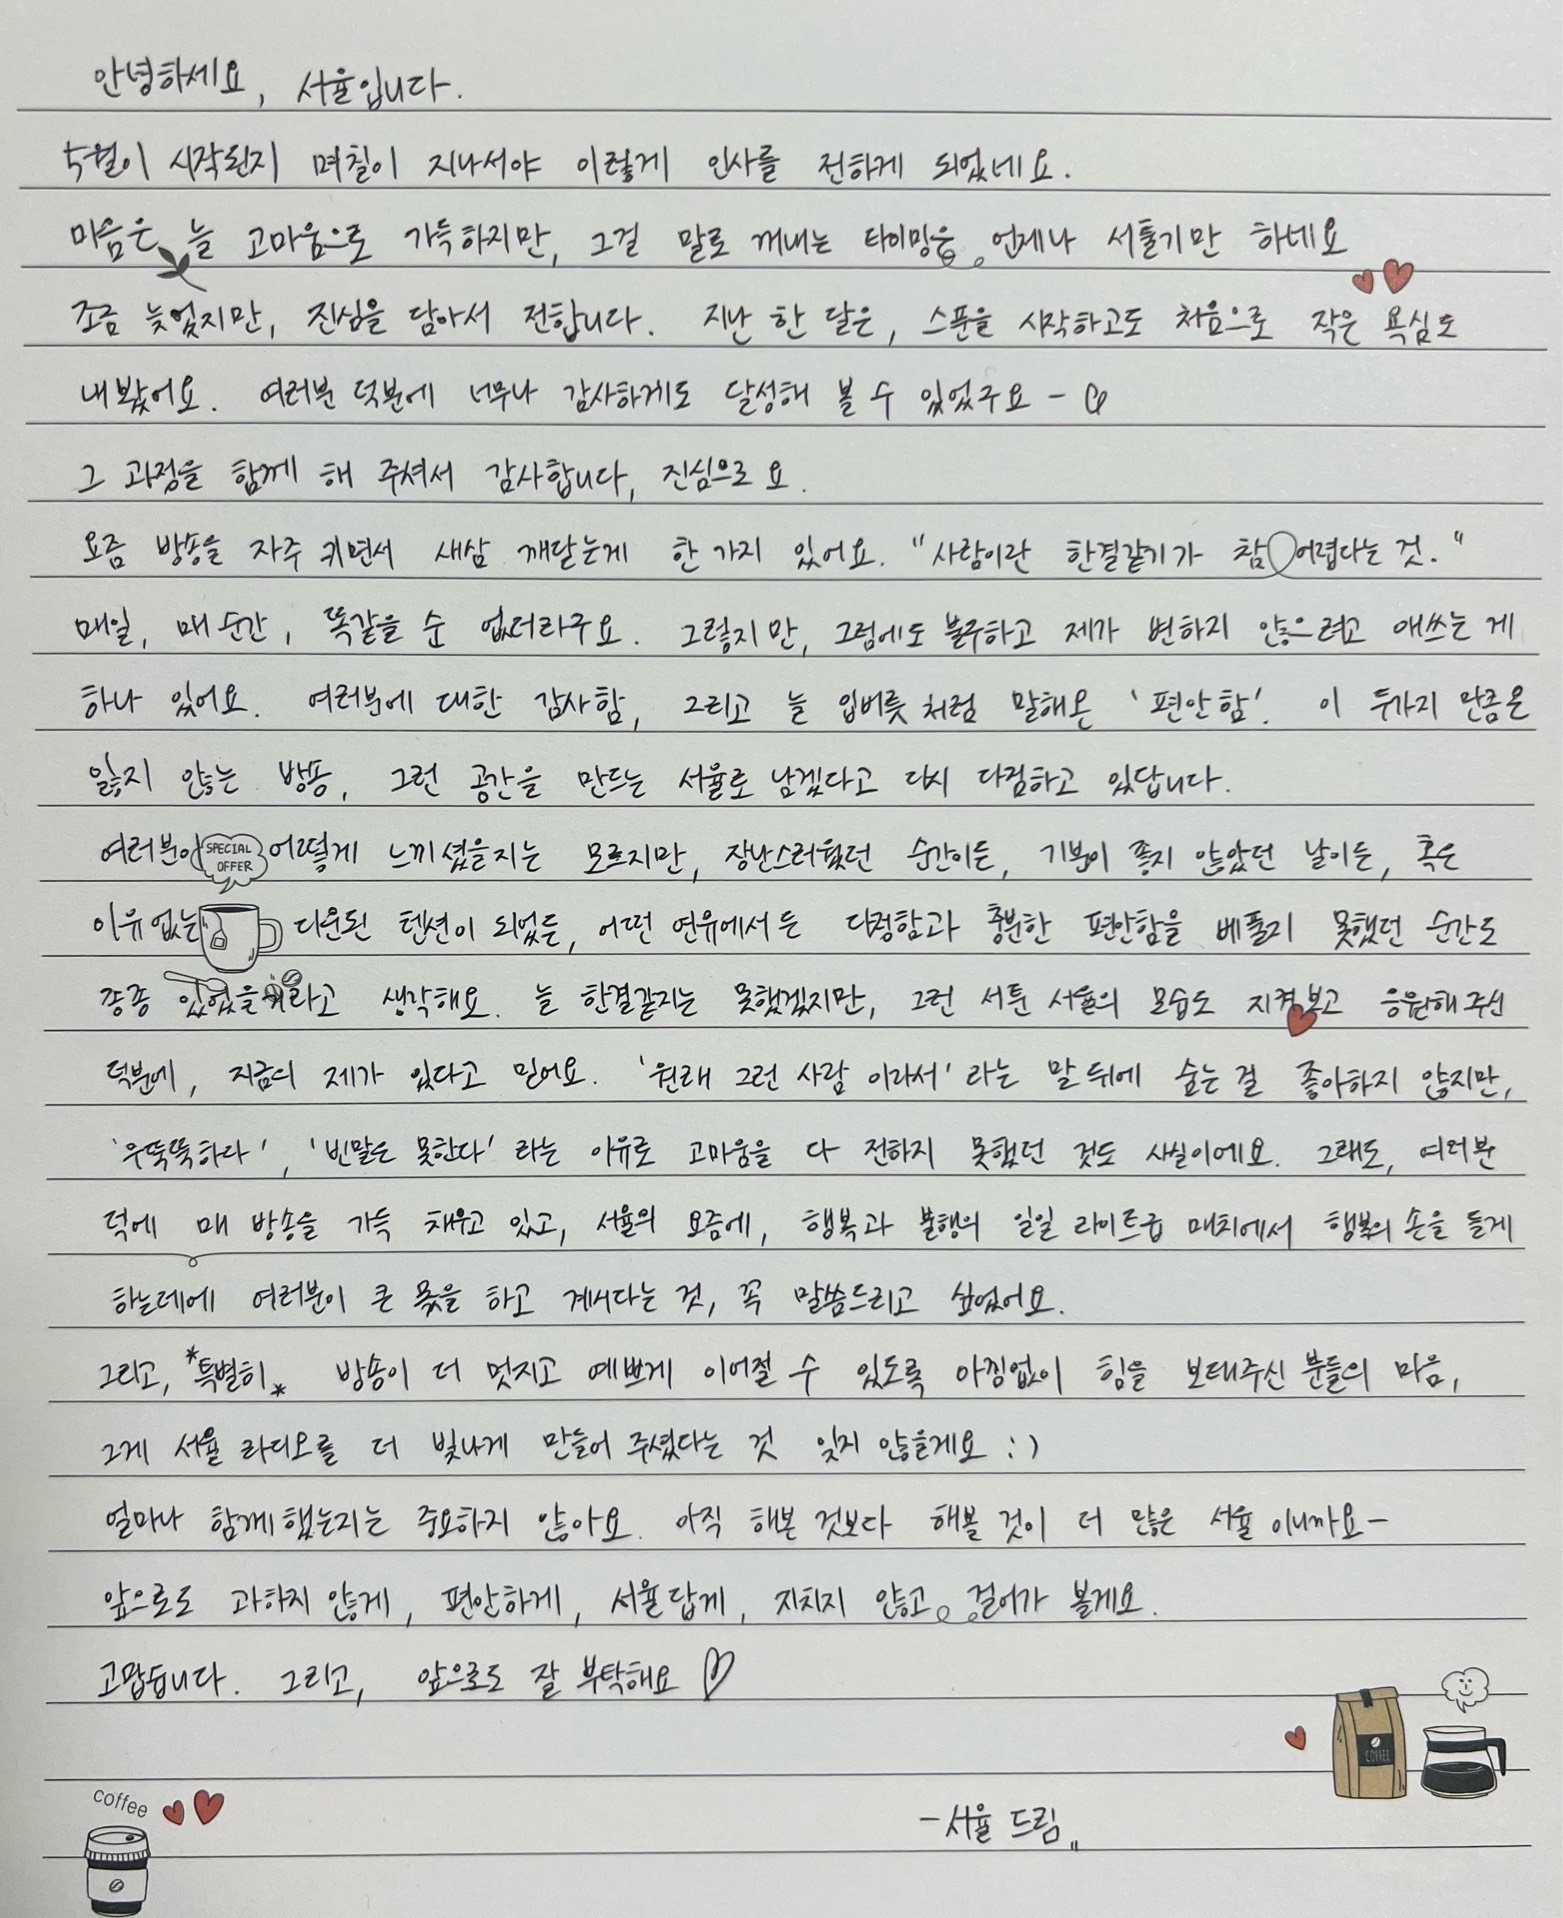 안녕하세요, 서율입니다.
5월이 시작된지 며칠이 지나서야 이렇게 인사를 전하게 되었네요.
마음은 늘 고마움으로 가득하지만, 그걸 말로 꺼내는 타이밍은 언제나 서툴기만 하네요
조금 늦었지만, 진심을 담아서 전합니다. 지난 한 달은, 스푼을 시작하고도 처음으로 작은 욕심도
내봤어요. 여러분 덕분에 너무나 감사하게도 달성해 볼 수 있었구요 -
그 과정을 함께 해 주셔서 감사합니다, 진심으로요.
요즘 방송을 자주 키면서 새삼 깨닫는게 한 가지 있어요. "사람이란 한결같기가 참 어렵다는 것."
매일, 매 순간, 똑같을 순 없더라구요. 그렇지만, 그럼에도 불구하고 제가 변하지 않으려고 애쓰는 게
하나 있어요. 여러분에 대한 감사함, 그리고 늘 입버릇처럼 말해온 '편안함'. 이 두가지 만큼은
잃지 않는 방송, 그런 공간을 만드는 서율로 남겠다고 다시 다짐하고 있답니다.
여러분이 SPECIAL OFFER 어떻게 느끼셨을지는 모르지만, 장난스러웠던 순간이든, 기분이 좋지 않았던 날이든, 혹은
이유없는 다운된 텐션이 되었든, 어떤 연유에서든 다정함과 충분한 편안함을 베풀지 못했던 순간도
종종 있었을거라고 생각해요. 늘 한결같지는 못했겠지만, 그런 서툰 서율의 모습도 지켜보고 응원해주신
덕분에, 지금의 제가 있다고 믿어요. '원래 그런 사람 이라서' 라는 말 뒤에 숨는 걸 좋아하지 않지만,
'무뚝뚝하다', '빈말은 못한다' 라는 이유로 고마움을 다 전하지 못했던 것도 사실이에요. 그래도, 여러분
덕에 매 방송을 가득 채우고 있고, 서율의 요즘에, 행복과 불행의 일일 라이트급 매치에서 행복의 손을 들게
하는데에 여러분이 큰 몫을 하고 계시다는 것, 꼭 말씀드리고 싶었어요.
그리고, *특별히* 방송이 더 멋지고 예쁘게 이어질 수 있도록 아낌없이 힘을 보태주신 분들의 마음,
그게 서율 라디오를 더 빛나게 만들어 주셨다는 것 잊지 않을게요 :)
얼마나 함께했는지는 중요하지 않아요. 아직 해본 것보다 해볼 것이 더 많은 서율 이니까요-
앞으로도 과하지 않게, 편안하게, 서율답게, 지치지 않고 걸어가 볼게요.
고맙습니다. 그리고, 앞으로도 잘 부탁해요 ♡
COFFEE
coffee
-서율 드림"